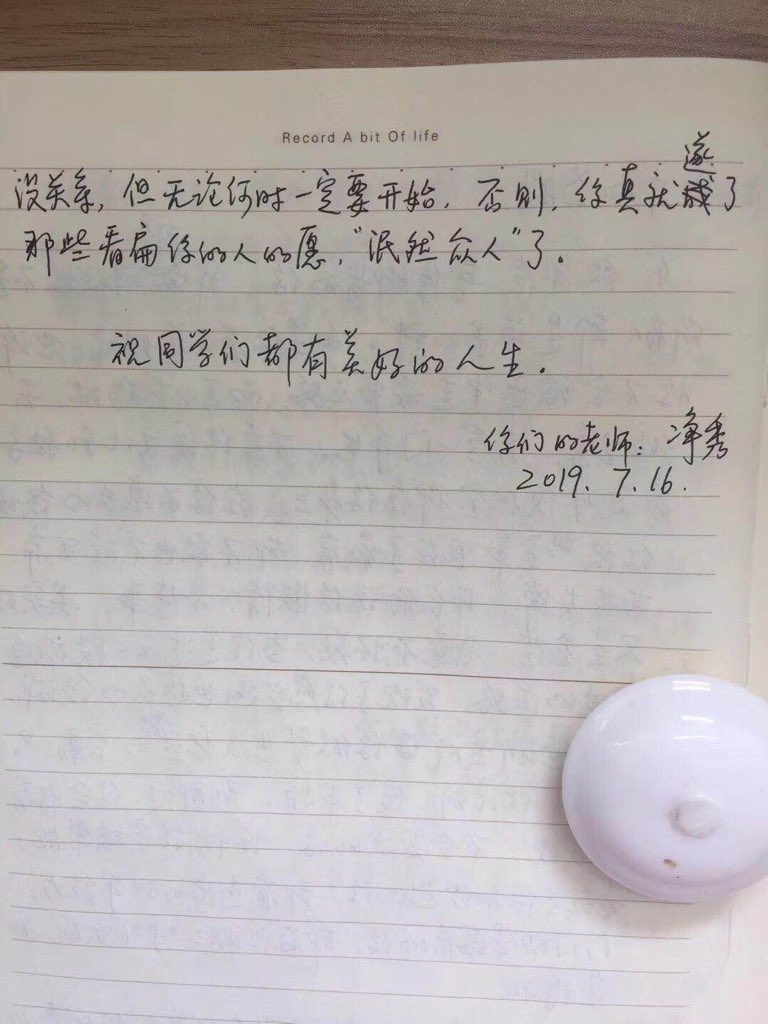 Record A bit Of life
没关系，但无论何时一定要开始，否则，你真就遂了
那些看扁你的人的愿，“泯然众人”了。
祝同学们都有美好的人生。
你们的老师：净秀
2019.7.16.